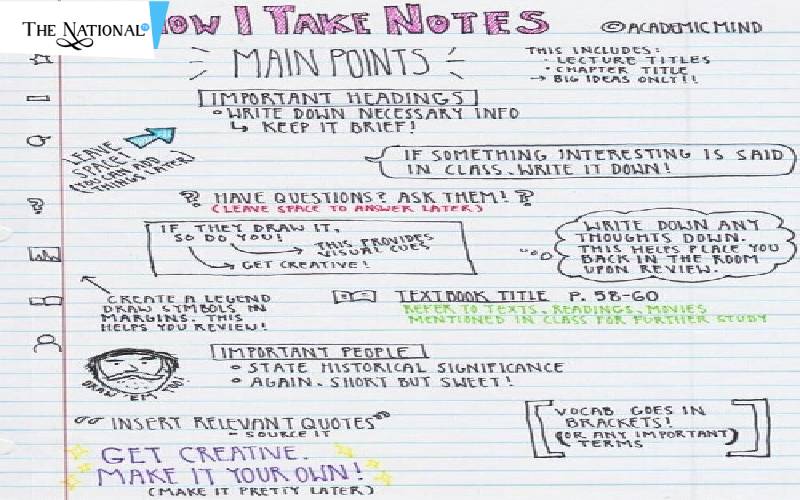 THE NATIONAL
HOW I TAKE NOTES
© ACADEMIC MIND
MAIN POINTS
THIS INCLUDES:
· LECTURE TITLES
· CHAPTER TITLE
→ BIG IDEAS ONLY!!
IMPORTANT HEADINGS
° WRITE DOWN NECESSARY INFO
↳ KEEP IT BRIEF!
LEAVE
SPACE!
(YOU CAN ADD
THINGS LATER)
IF SOMETHING INTERESTING IS SAID
IN CLASS, WRITE IT DOWN!
? HAVE QUESTIONS? ASK THEM! ?
(LEAVE SPACE TO ANSWER LATER)
IF THEY DRAW IT,
SO DO YOU!
THIS PROVIDES
VISUAL CUES
GET CREATIVE!
WRITE DOWN ANY
THOUGHTS DOWN.
THIS HELPS PLACE YOU
BACK IN THE ROOM
UPON REVIEW.
CREATE A LEGEND
DRAW SYMBOLS IN
MARGINS. THIS
HELPS YOU REVIEW!
TEXTBOOK TITLE P. 58-60
REFER TO TEXTS, READINGS, MOVIES
MENTIONED IN CLASS FOR FURTHER STUDY
IMPORTANT PEOPLE
° STATE HISTORICAL SIGNIFICANCE
° AGAIN, SHORT BUT SWEET!
DRAW 'EM TOO!
"INSERT RELEVANT QUOTES"
- SOURCE IT
[VOCAB GOES IN
BRACKETS!
(OR ANY IMPORTANT)
TERMS]
GET CREATIVE.
MAKE IT YOUR OWN!
(MAKE IT PRETTY LATER)